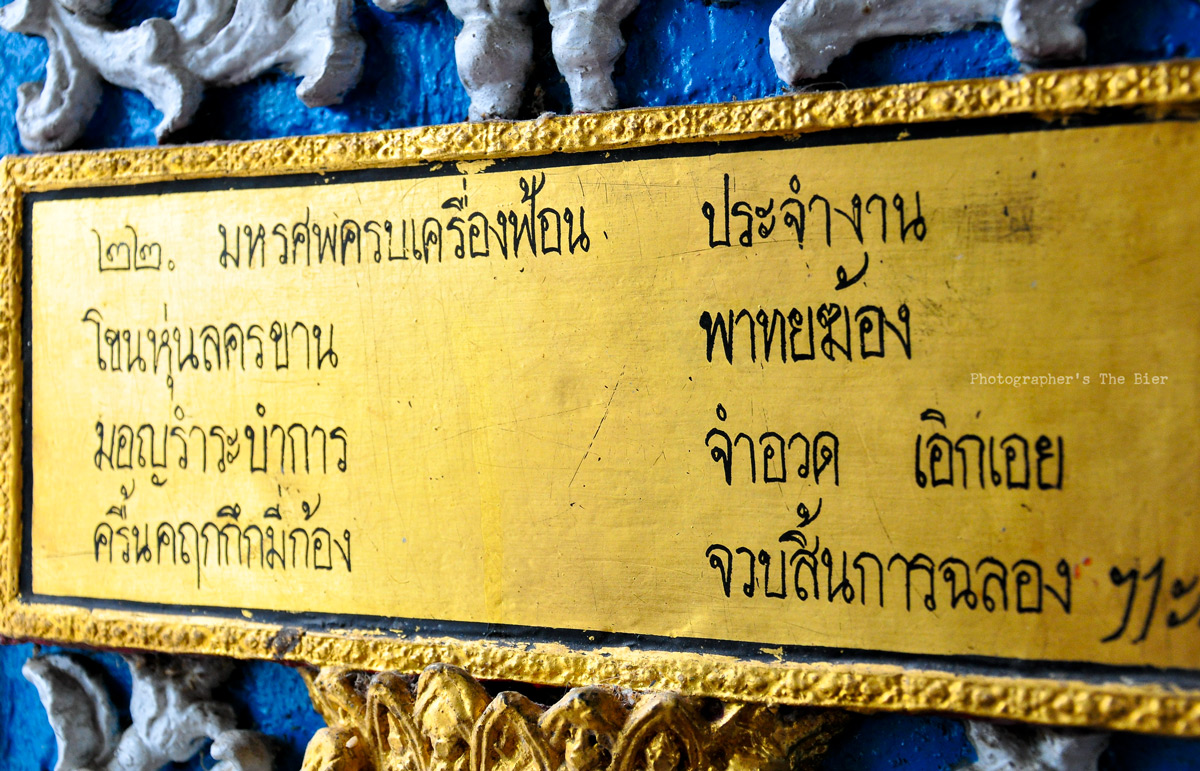 ๒๒. มหรศพครบเครื่องฟ้อน ประจำงาน
โขนหุ่นลครขาน พาทยฆ้อง
มอญรำระบำการ จำอวด เอิกเอย
ครื้นคฤกกึกมี่ก้อง จวบสิ้นการฉลอง ๆ
Photographer's The Bier